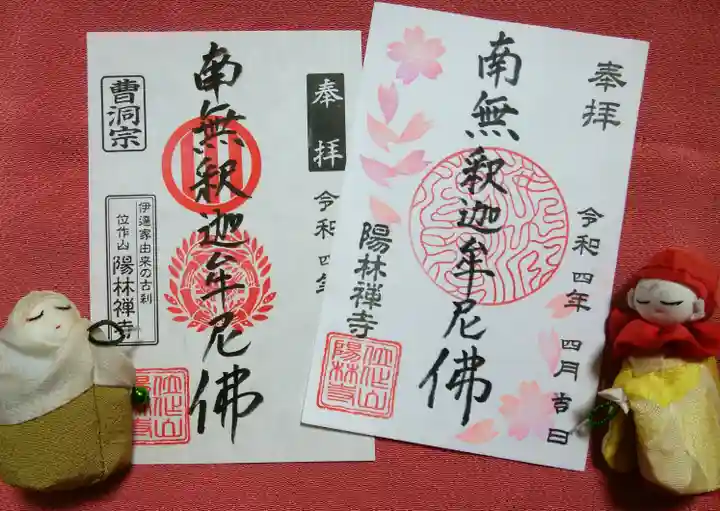 奉拝
令和四年
南無釈迦牟尼佛
曹洞宗
伊達家由来の古刹
位作山 陽林禅寺
奉拝
令和四年 四月 吉日
南無釈迦牟尼佛
陽林禅寺
位作山
陽林寺